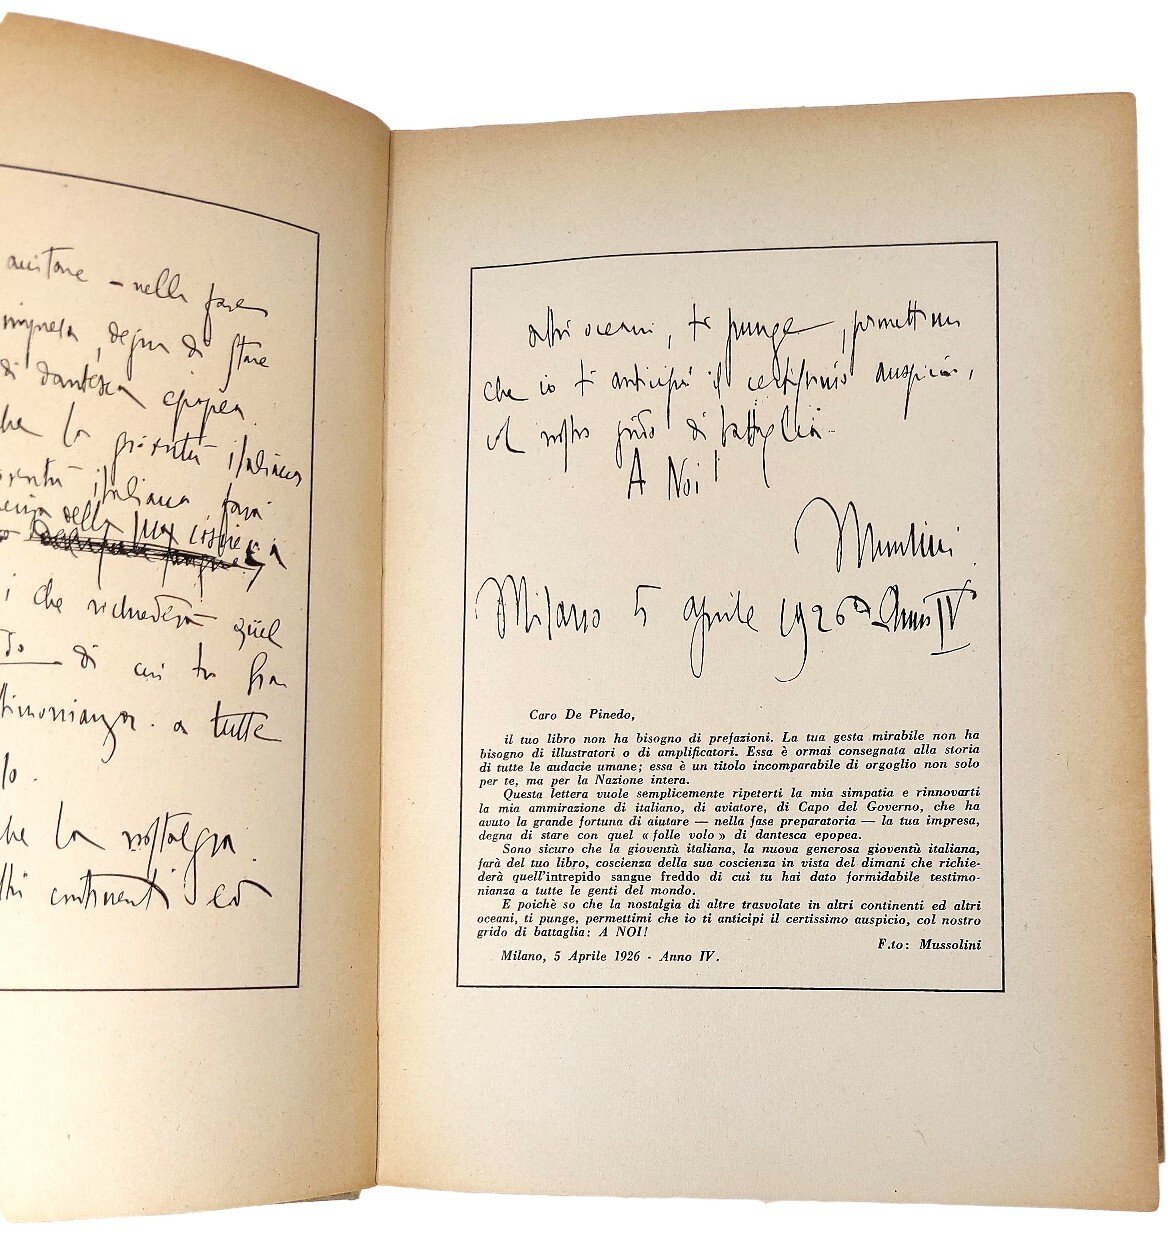 aiutare – nella fase
impresa, degna di stare
di dantesca epopea
che la gioventù italiana
gioventù italiana, farà
coscienza della sua coscienza
i che richiederà quel
di cui tu hai
timonianza a tutte
lo.
che la nostalgia
altri continenti ed
altri oceani, ti punge, permettimi
che io ti anticipi il certissimo auspicio,
col nostro grido di battaglia.
A Noi!
Mussolini
Milano 5 aprile 1926 - Anno IV
Caro De Pinedo,
il tuo libro non ha bisogno di prefazioni. La tua gesta mirabile non ha
bisogno di illustratori o di amplificatori. Essa è ormai consegnata alla storia
di tutte le audacie umane; essa è un titolo incomparabile di orgoglio non solo
per te, ma per la Nazione intera.
Questa lettera vuole semplicemente ripeterti la mia simpatia e rinnovarti
la mia ammirazione di italiano, di aviatore, di Capo del Governo, che ha
avuto la grande fortuna di aiutare — nella fase preparatoria — la tua impresa,
degna di stare con quel « folle volo » di dantesca epopea.
Sono sicuro che la gioventù italiana, la nuova generosa gioventù italiana,
farà del tuo libro, coscienza della sua coscienza in vista del dimani che richie-
derà quell'intrepido sangue freddo di cui tu hai dato formidabile testimo-
nianza a tutte le genti del mondo.
E poichè so che la nostalgia di altre trasvolate in altri continenti ed altri
oceani, ti punge, permettimi che io ti anticipi il certissimo auspicio, col nostro
grido di battaglia: A NOI!
F.to: Mussolini
Milano, 5 Aprile 1926 - Anno IV.